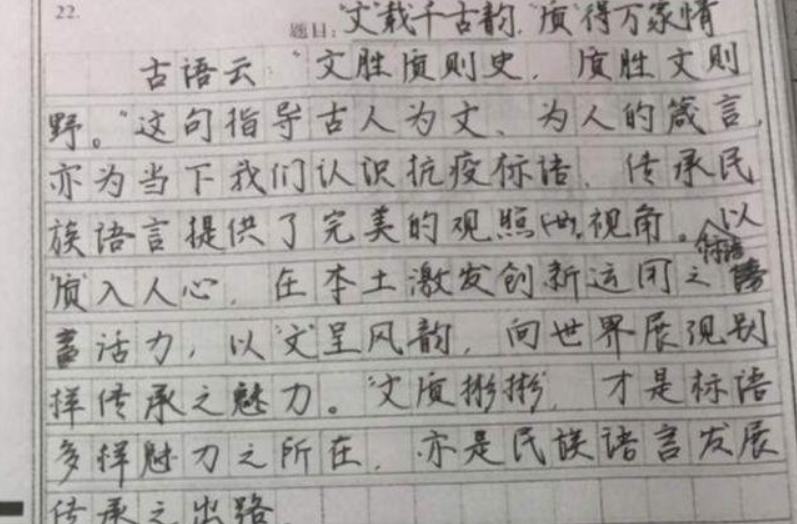 22.
题目：“文”载千古韵，“质”得万家情
古语云：“文胜质则史，质胜文则
野。”这句指导古人为文、为人的箴言，
亦为当下我们认识抗疫标语、传承民
族语言提供了完美的观照视角。以
标语
“质”入人心，在本土激发创新运用之
活力，以“文”呈风韵，向世界展现别
样传承之魅力。“文质彬彬”，才是标语
多样魅力之所在，亦是民族语言发展
传承之出路。